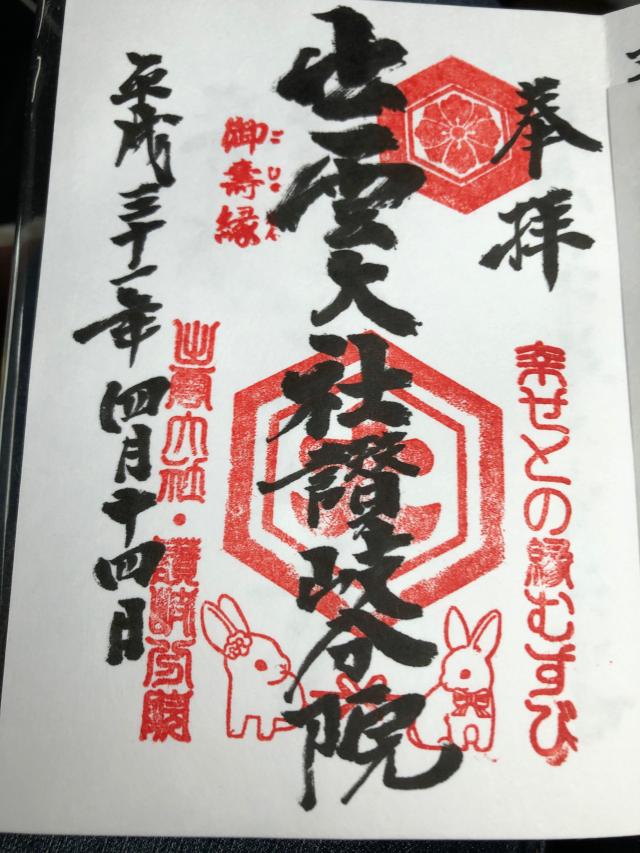 奉拝
幸せとの縁むすび
出雲大社讃岐分院
御壽縁
出雲大社・讃岐分院
平成三十一年四月十四日